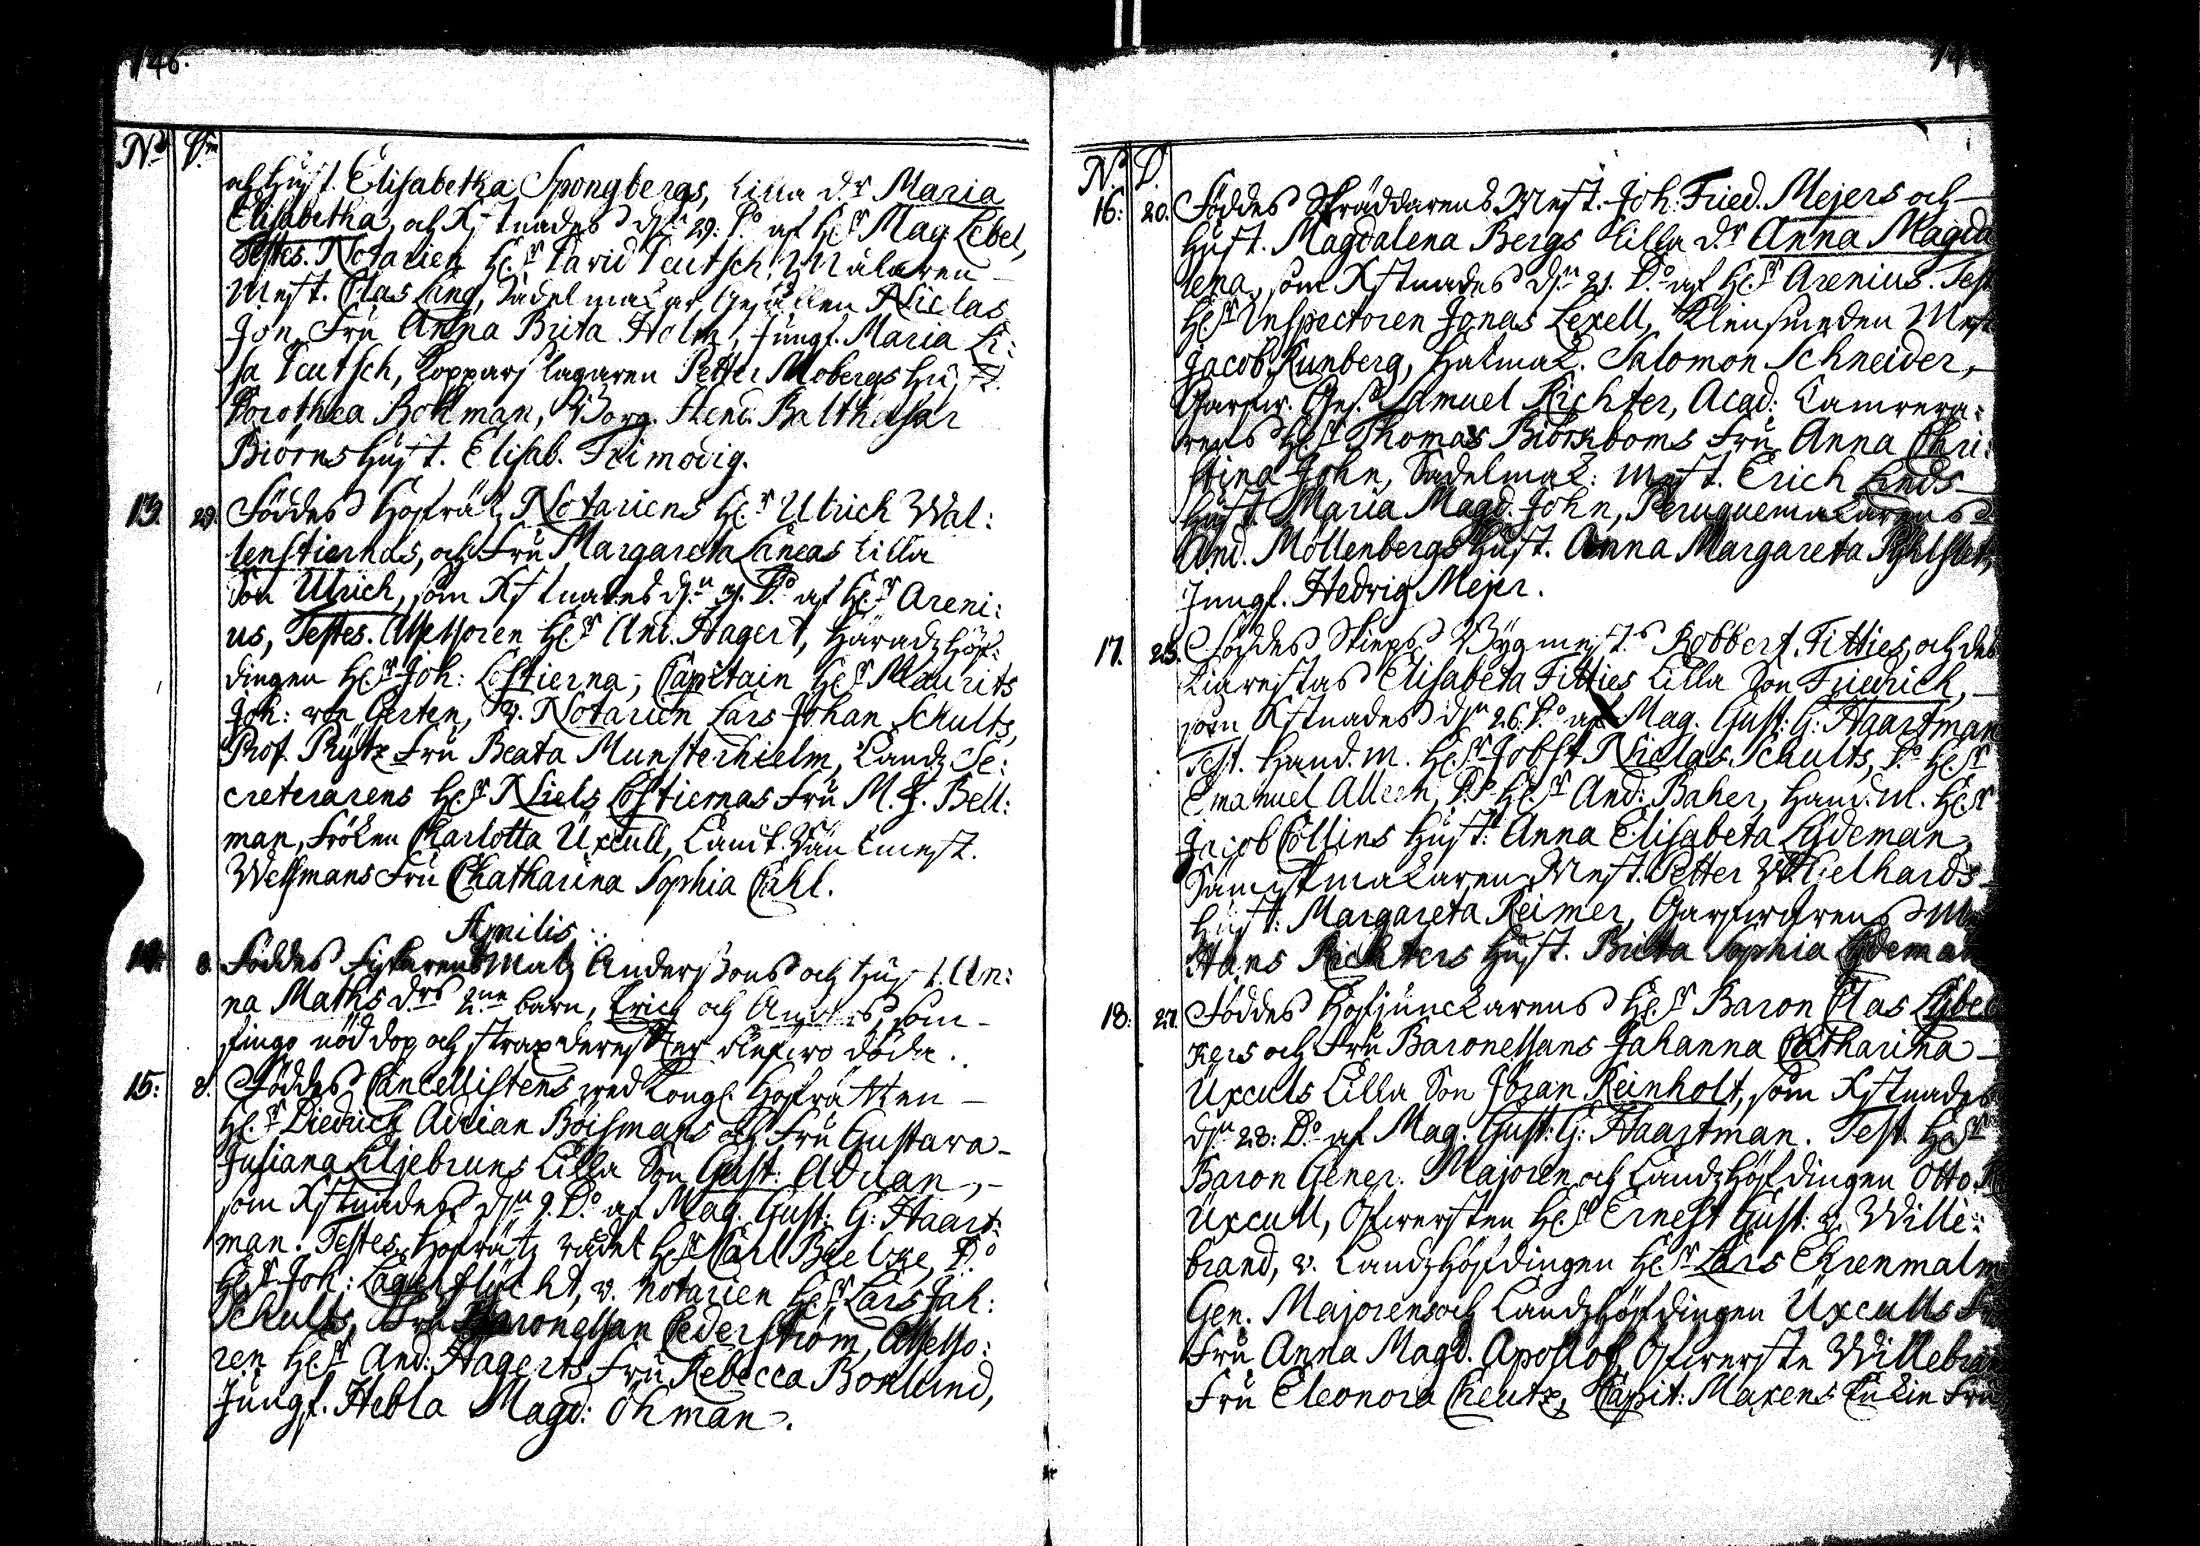 146.
No Dm
och Hust. Elisabetha Spongbergs, lilla dr Maria
Elisabetha, och Xstnades dn 29. Do af Hr Mag. Lebel,
Testes. Notarien Hr David Deutsch, Målaren
Mest. Clas Lang, Sadelmakar Gesällen Niclas
Jon, Fru Anna Brita Holm, Jungf. Maria Li:
sa Deutsch, Kopparslagaren Petter Mobergs Hust.
Dorothea Bohman, Borg. Hend. Balthasar
Biörns Hust. Elisab. Frimodig.
13. 29. Föddes Hofrätz Notariens Hr Ulrich Wal:
lenstiernas, och Fru Margareta Låneas lilla
Son Ulrich, som Xstnades dn 31. Do af Hr Areni:
us, Testes. Assessoren Hr And. Hagert, Häradzhöf:
dingen Hr Joh: Costierna, Capitain Hr Maurits
Joh: von Gerten, V. Notarien Lars Johan Schults,
Prof. Pryss Fru Beata Munsterhielm, Landz Se:
creterarens Hr Niels Costiernas Fru M. E. Bell:
man, Fröken Charlotta Üxcull, Landt Räntmest.
Welsmans Fru Chatharina Sophia Pahl.
Aprilis:
14: 8. Föddes Fiskarens Matz Anderssons och Hust. An:
na Maths drs 2ne barn, Erich och Anders, som
fingo nöddop och strax derefter blefwo döda.
15: 8. Föddes Cancellistens wed Kongl. Hofrätten
Hr Diedrich Adrian Boismans och Fru Gustava
Juliana Liljebruns lilla Son Gust: Adrian,
som Xstnades dn 9. Do af Mag. Gust: G: Haart:
man. Testes, Hofrätz rådet Hr Carl Bielke, Do
Hr Joh: Lagerflycht, v. Notarien Hr Lars Joh:
Schults, Fru Baronessan Cederström, Assesso:
ren Hr And: Hagerts Fru Rebecca Boklund,
Jungf. Hebla Magd: Öhman.
No D.
16: 20. Föddes Skräddarens Mest. Joh: Fried. Mejers och
Hust. Magdalena Bergs lilla dr Anna Magda
lena, som Xstnades dn 21. Do af Hr Arenius. Test
Hr Inspectoren Jonas Lexell, Klensmeden Mest
Jacob Kunberg, Hatmak. Salomon Schneider,
Garfw. Ges. Samuel Richter, Acad: Camrera:
rens Hr Thomas Biörkboms Fru Anna Chri:
stina John, Sadelmak: Mest. Erich Linds
Hust. Maria Magd. John, Peruquemakarens
And. Möllenbergs Hust. Anna Margareta
Jungf. Hedvig Mejer.
17. 25. Föddes Skieps Bygmest. Robbert Fitties, och des
Kiärestas Elisabeta Fitties lilla Son Friedrich,
som Xstnades dn 26. Do af Mag. Gust: G: Haartman
Test. Hand. m. Hr Jobst Niclas Schults, Do Hr
Emanuel Alleen, Do Hr And: Baher, Hand. M. Hr
Jacob Collins Hust: Anna Elisabeta Lydeman,
Sämskmakaren Mest. Petter Wilhelhards
Hust: Margareta Reimer, Garfwarens
Hans Richters Hust. Brita Sophia Lydeman
18: 27. Föddes Hofjunckarens Hr Baron Clas Lybec
kers och Fru Baronessans Johanna Catharina
Üxculls lilla Son Jöran Reinholt, som Xstnades
dn 28: Do af Mag. Gust: G: Haartman. Test Hr
Baron Gener. Majoren och Landzhöfdingen Otto
Üxcull, Öfwersten Hr Ernest Gust: v. Wille:
brand, v. Landzhöfdingen Hr Lars Ehrenmalm
Gen. Majorens och Landzhöfdingen Üxculls
Fru Anna Magd. Apollof, Öfwerste Willebran
Fru Eleonora Creutz, Capit: Maxens Fru